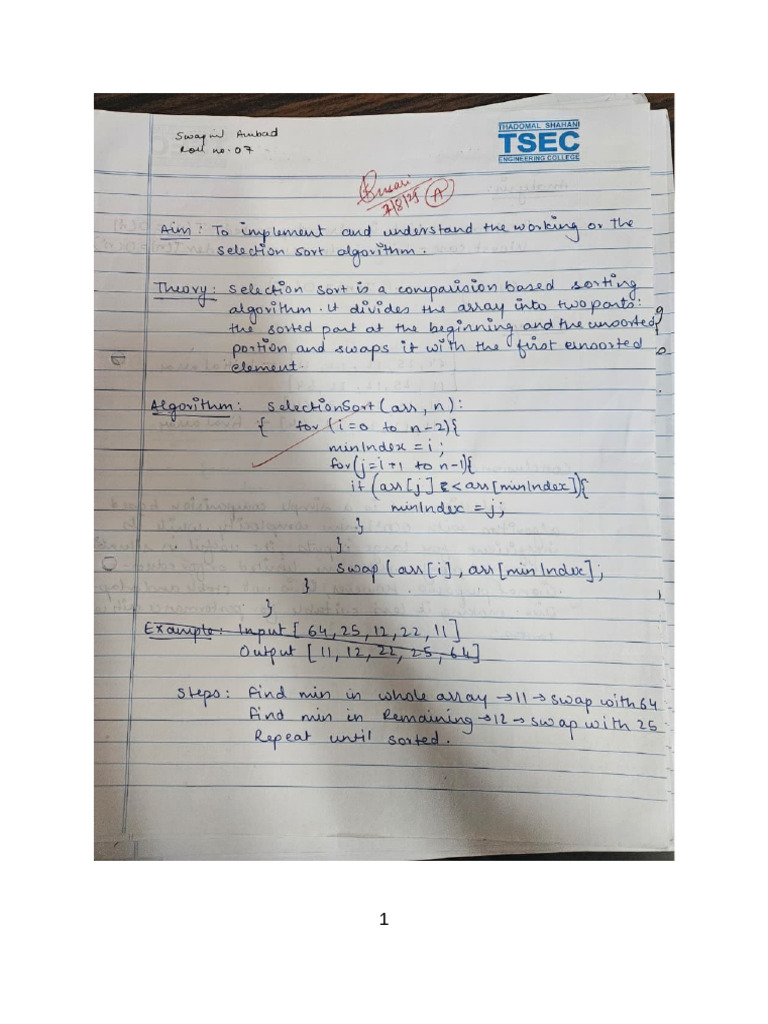 Swapnil Ambad
Roll no. 07
THADOMAL SHAHANI
TSEC
ENGINEERING COLLEGE
7/8/25 A
Aim: To implement and understand the working or the
selection sort algorithm.
Theory: selection sort is a comparision based sorting
algorithm. It divides the array into two parts:
the sorted part at the beginning and the unsorted
portion and swaps it with the first unsorted
element.
Algorithm: SelectionSort(arr, n):
{ for (i=0 to n-2){
minIndex = i;
for(j=i+1 to n-1){
if (arr[j] < arr[minIndex]){
minIndex = j;
}
}
swap (arr[i], arr[minIndex];
}
}
Example: Input [ 64, 25, 12, 22, 11]
Output [ 11, 12, 22, 25, 64]
Steps: Find min in whole array → 11 → swap with 64
Find min in Remaining → 12 → swap with 25
Repeat until sorted.
1